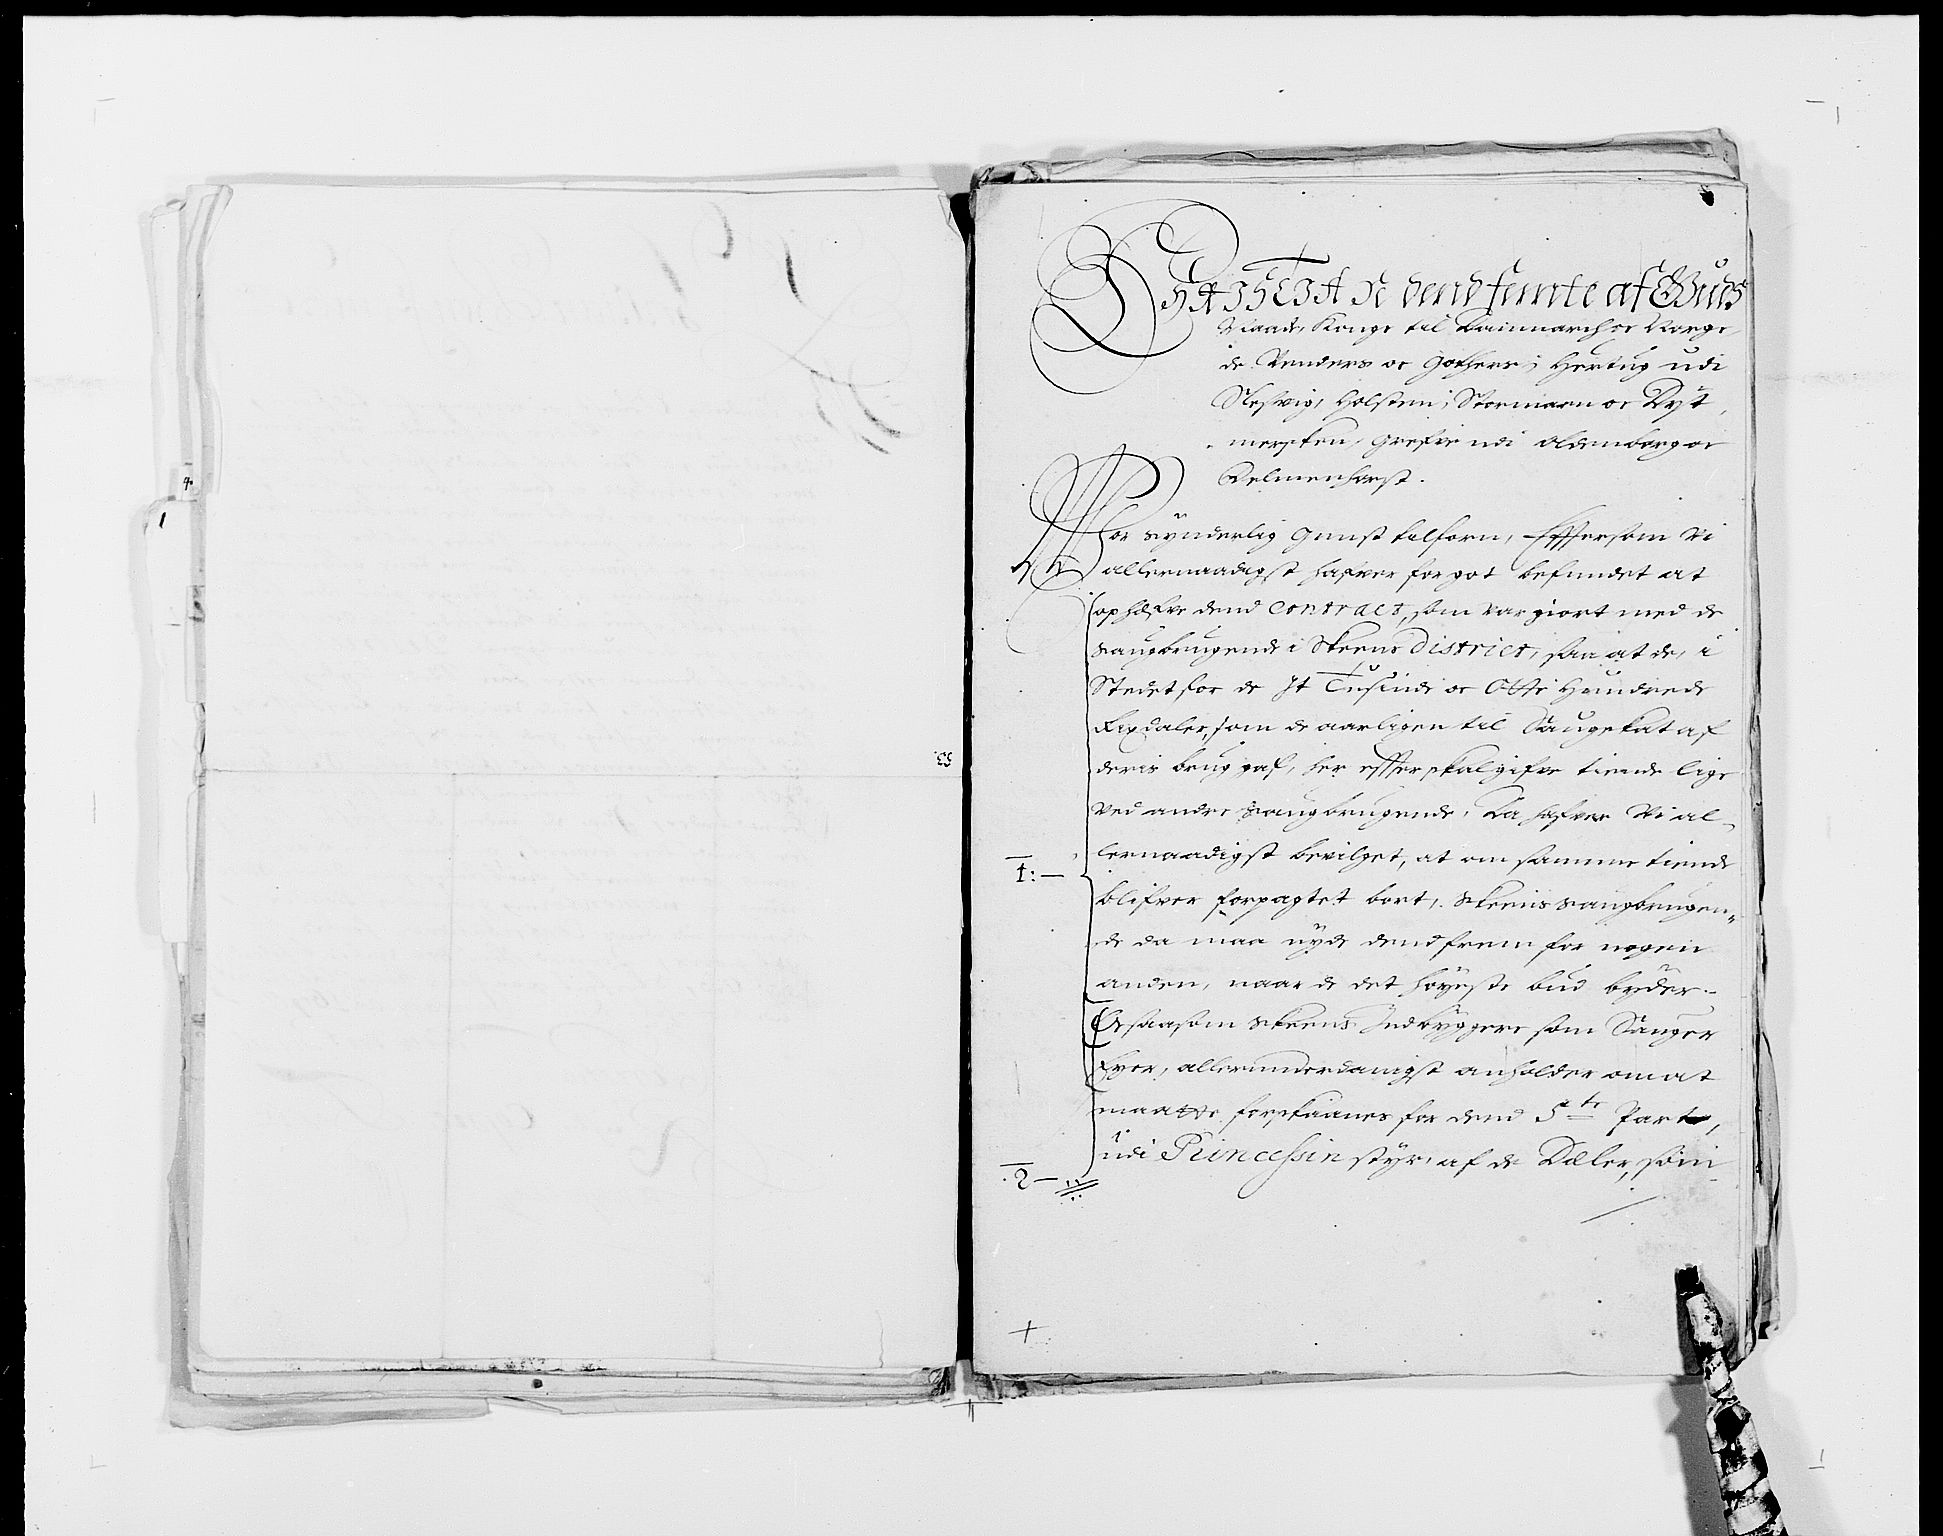 CHRISTIAN dend femte af Guds
Naade, Konge til Dannmarch oc Norge
de Venders oc Gothers, Hertug udi
Slesvig, Holsten, Stormarn oc Dyt,
mersken, Grefve udi Oldenborg oc
Delmenhorst.
Vor synderlig Gunst tilforn, Efftersom Vi
allernaadigst hafver for got befundet at
ophæfve dend contract, som var giort med de
Saugbrugende i Skeens District, saa at de, i
Stedet for de It Tusinde oc Otte Hundrede
Rixdaler, som de aarligen til Saugskat af
deris brug gaf, her effter skal gifve tiende lige
ved andre Saugbrugende, Da hafver Vi al-
lernaadigst bevilget, at om samme tiende
1:—
blifver forpagtet bort, Skeens Saugbrugen-
de da maa nyde dend frem for nogen
anden, naar de det høyeste bud byder.
Oc saasom Skeens Indbyggere som Sauger
Eyer, allerunderdanigst anholder om at
maatte forskaanes for dend 5te Part,
udi Princessin styr, af de Daler, som
2—
53.
1
4